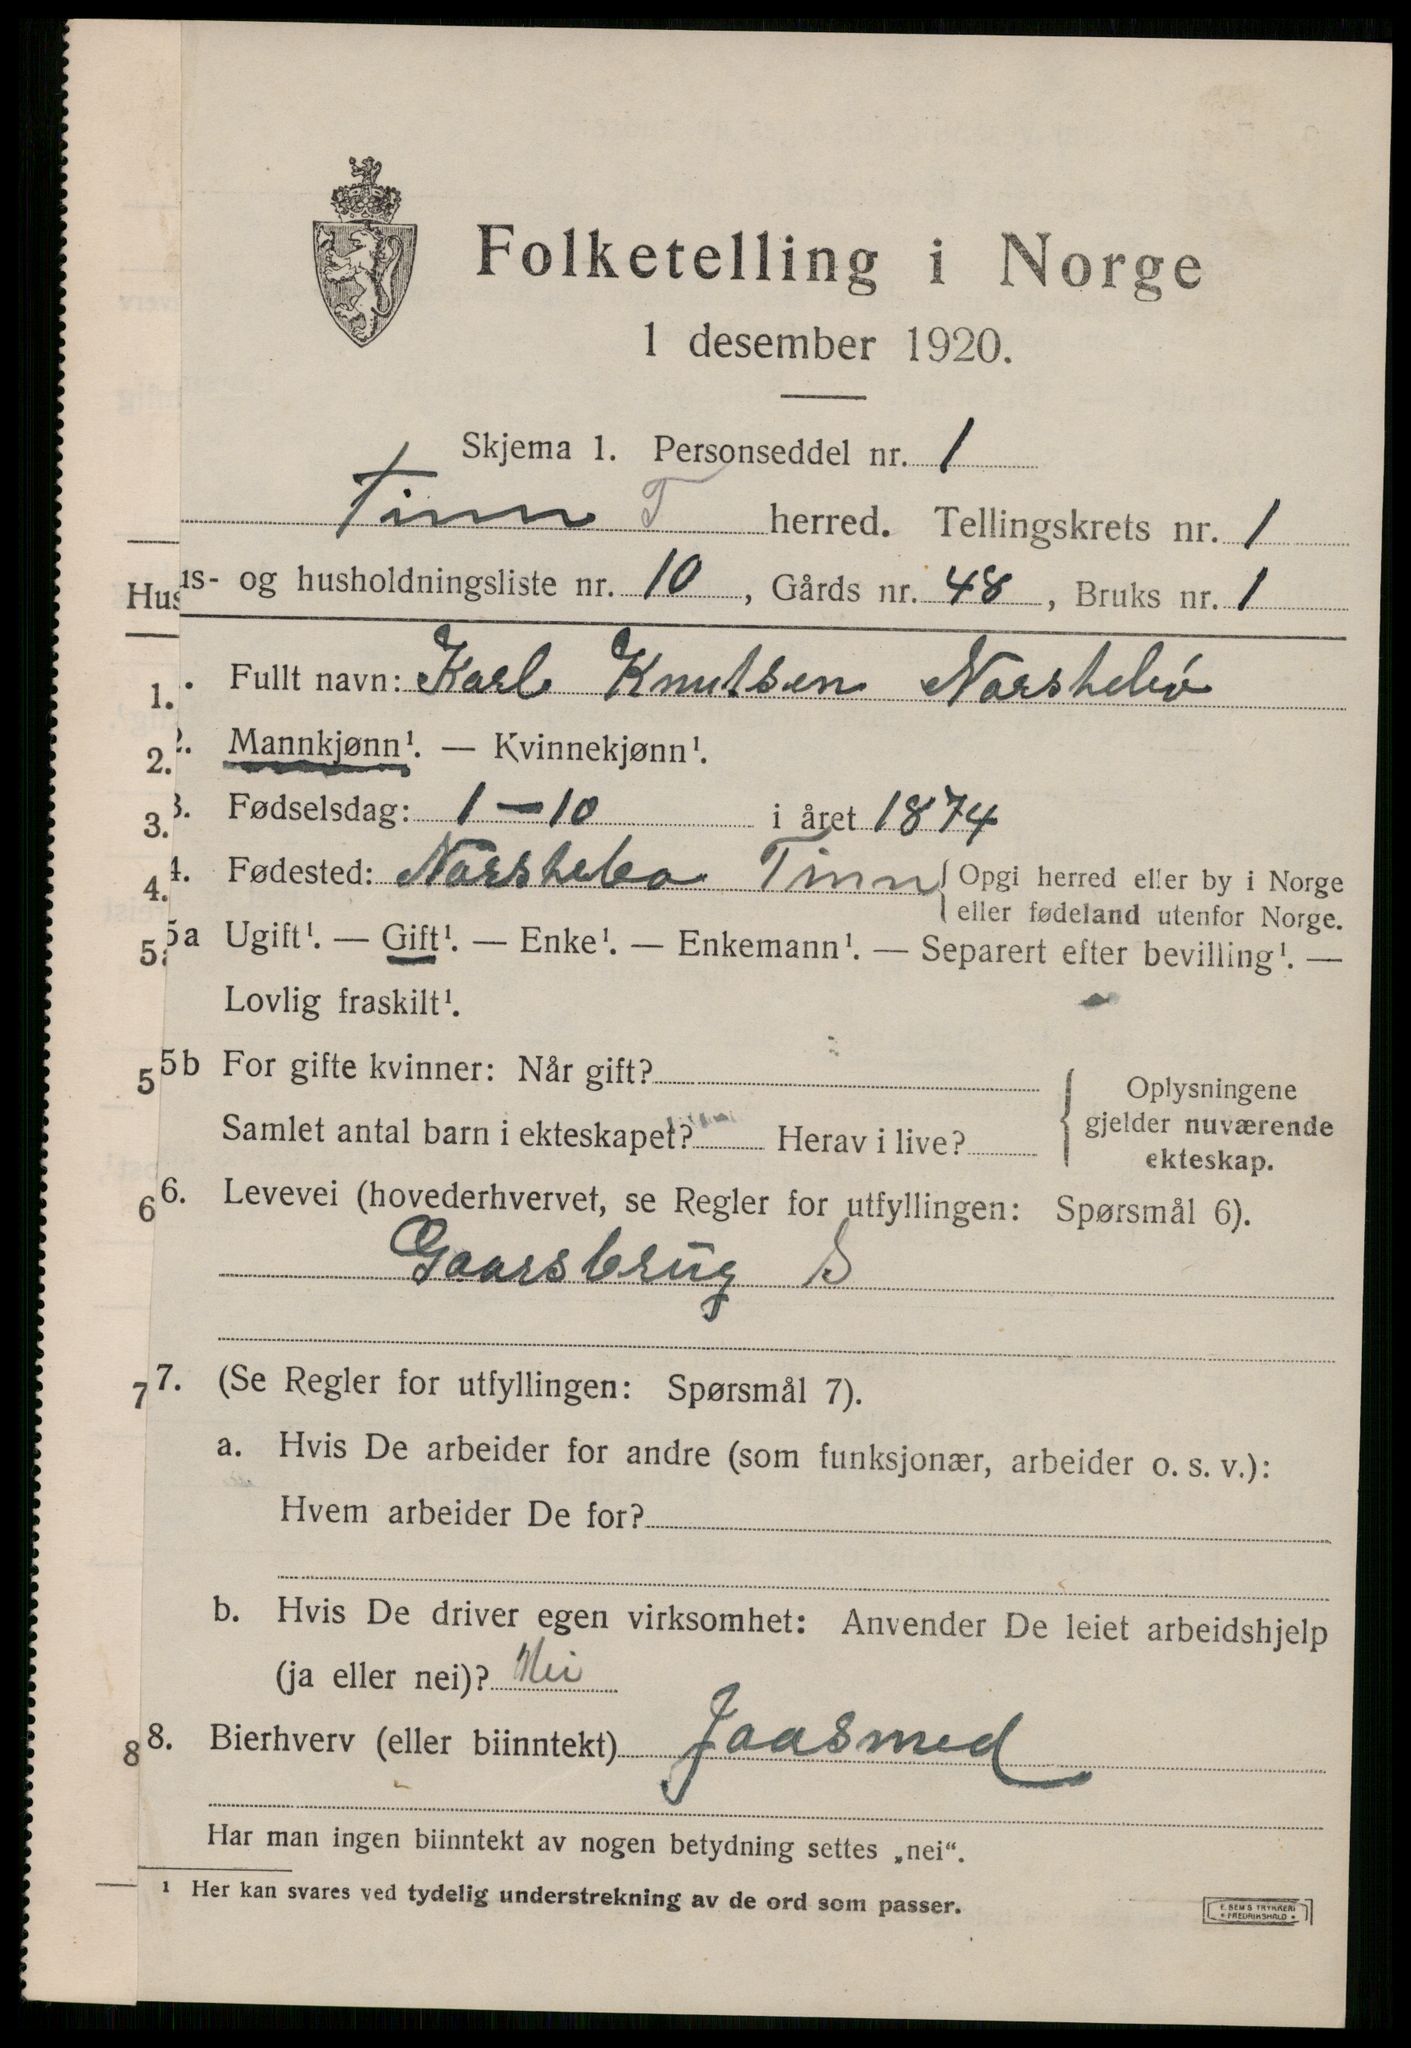 Folketelling i Norge
1 desember 1920.
Skjema 1. Personseddel nr. 1
Tinn T herred. Tellingskrets nr. 1
Hus
us- og husholdningsliste nr. 10, Gårds nr. 48, Bruks nr. 1
1. Fullt navn: Karl Knutsen Norshebø
2. 2. Mannkjønn¹. — Kvinnekjønn¹.
3. 3. Fødselsdag: 1–10 i året 1874
4. 4. Fødested: Norshebø Tinn Opgi herred eller by i Norge
eller fødeland utenfor Norge.
5a 5a Ugift¹. — Gift¹. — Enke¹. — Enkemann¹. — Separert efter bevilling¹. —
Lovlig fraskilt¹.
5 5b For gifte kvinner: Når gift?
Oplysningene
Samlet antal barn i ekteskapet? Herav i live? gjelder nuværende
ekteskap.
6 6. Levevei (hovederhvervet, se Regler for utfyllingen: Spørsmål 6).
Gaarsbrug S
7 7. (Se Regler for utfyllingen: Spørsmål 7).
a. Hvis De arbeider for andre (som funksjonær, arbeider o. s. v.):
Hvem arbeider De for?
b. Hvis De driver egen virksomhet: Anvender De leiet arbeidshjelp
(ja eller nei)? Nei
8 8. Bierhverv (eller biinntekt) Jaasmed
Har man ingen biinntekt av nogen betydning settes „nei“.
¹ Her kan svares ved tydelig understrekning av de ord som passer.
E. SEM'S TRYKKERI
* FREDRIKSHALD *